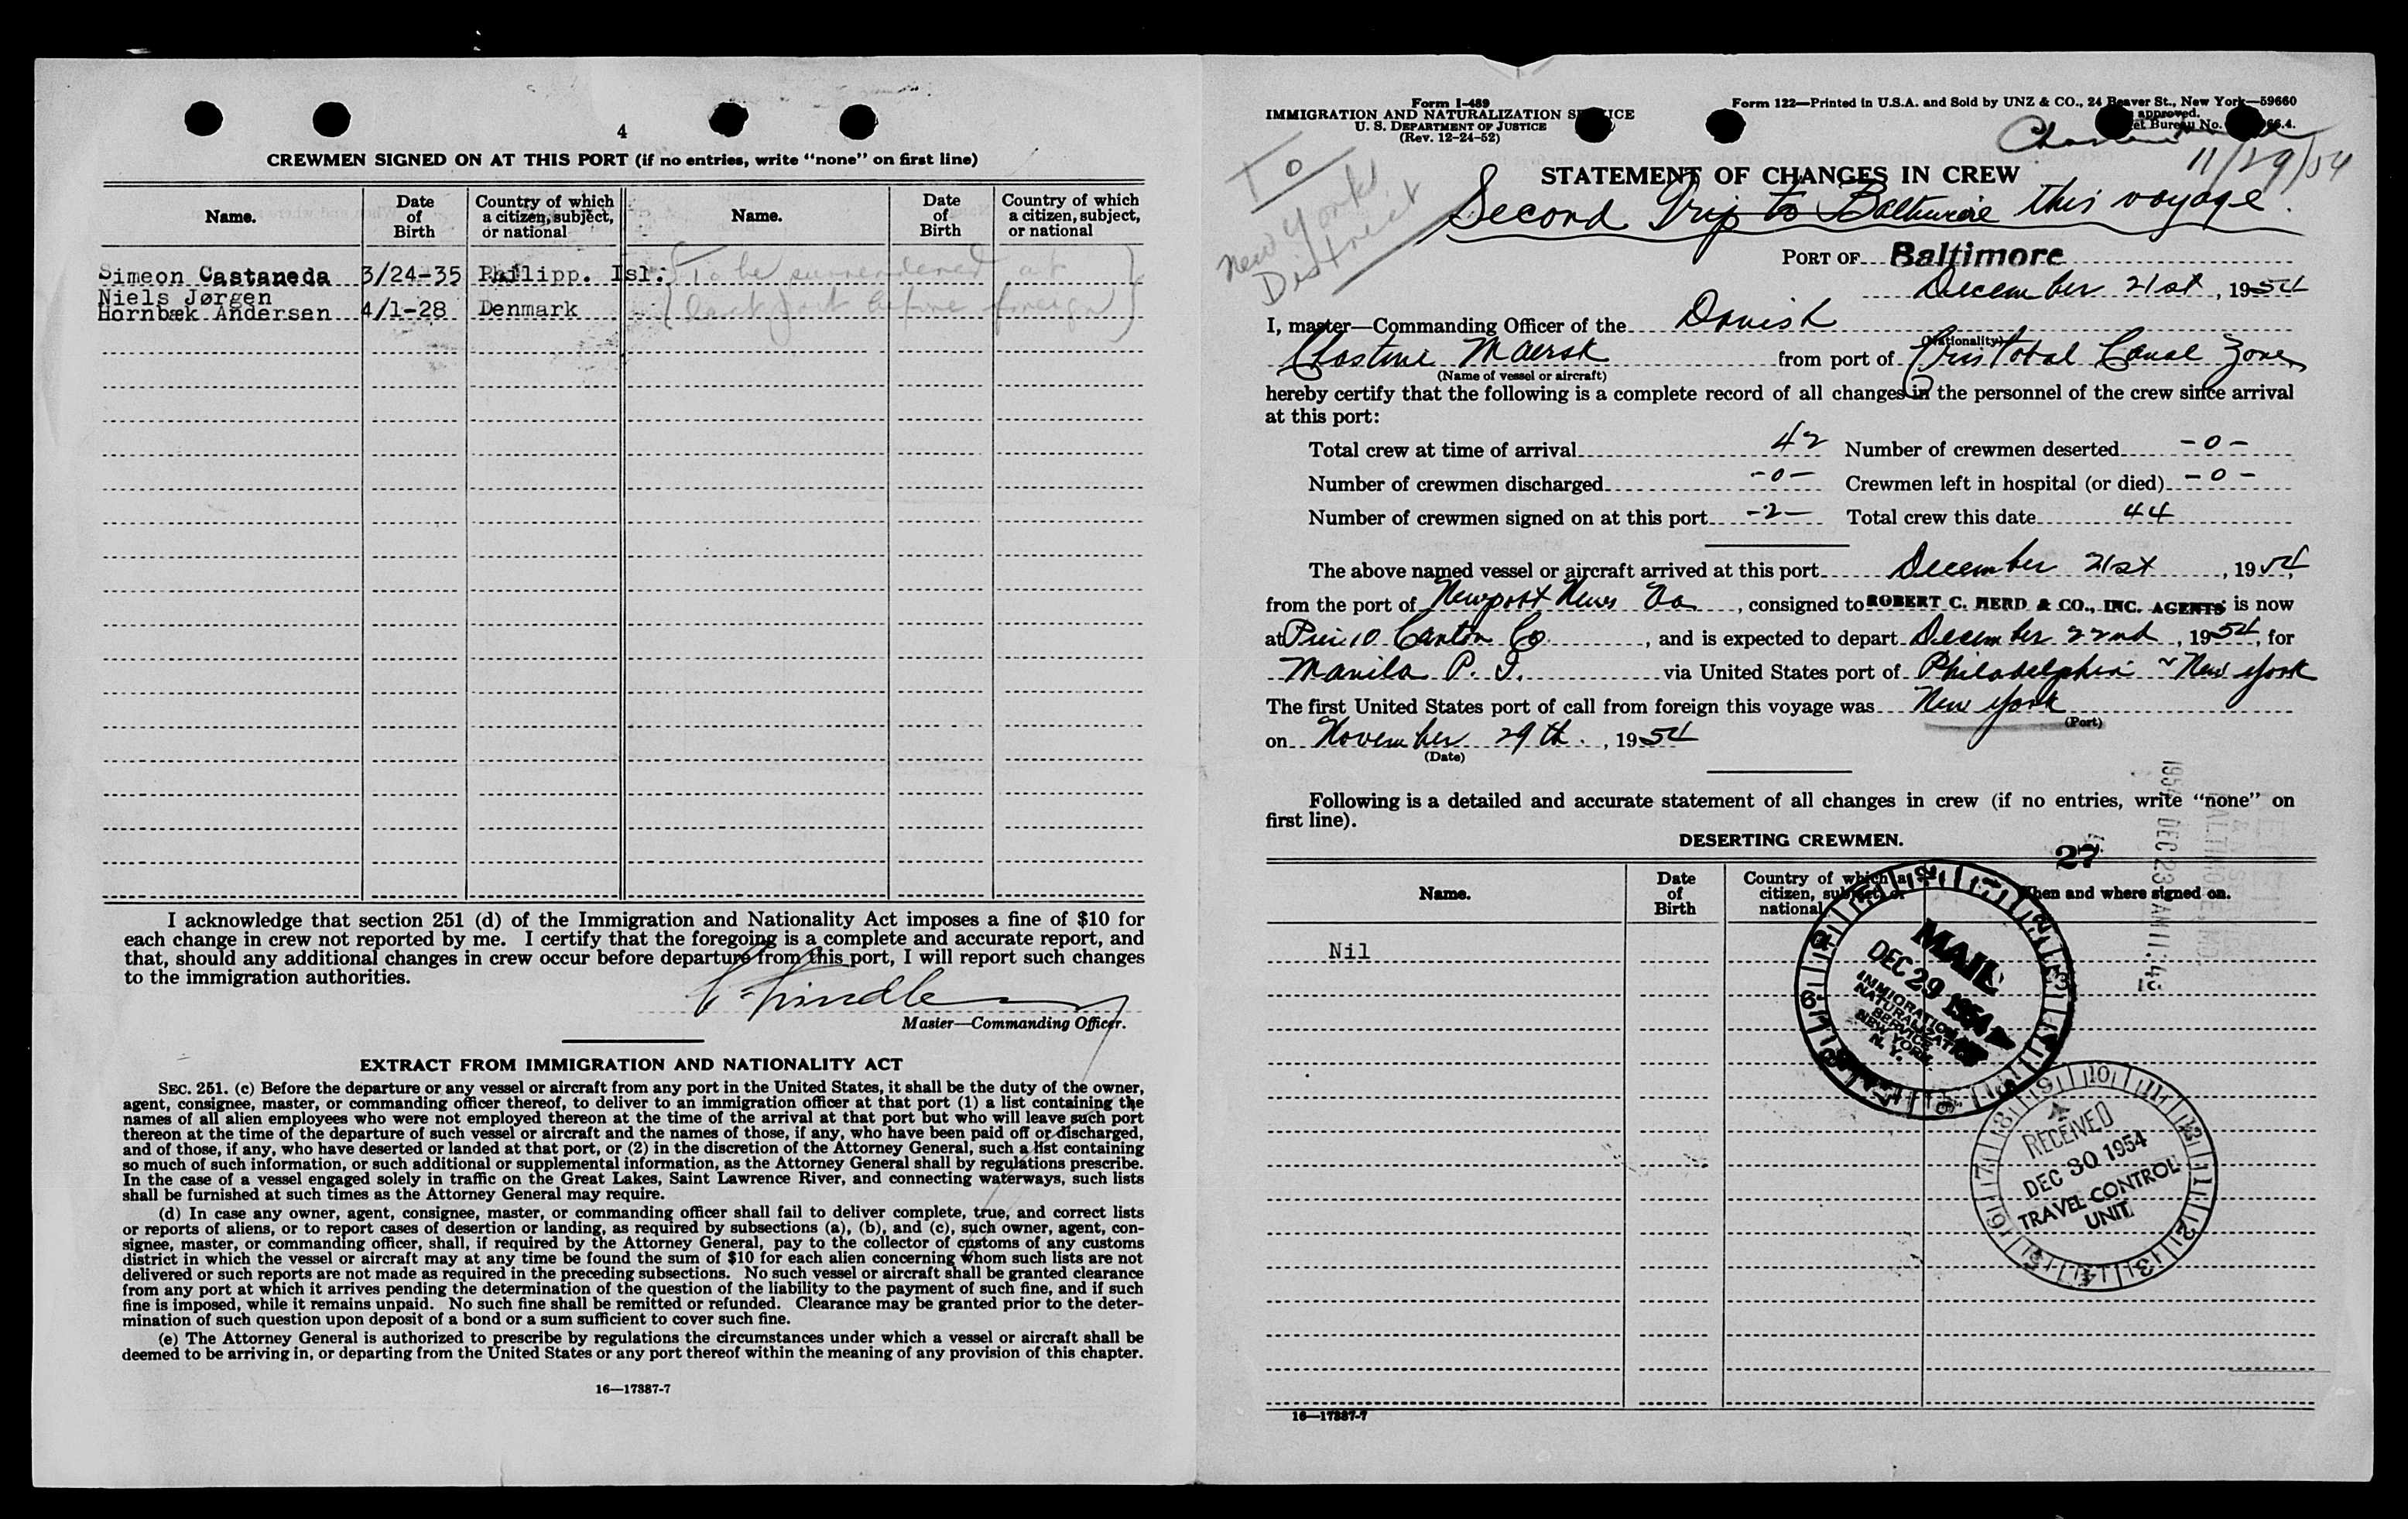 4
CREWMEN SIGNED ON AT THIS PORT (if no entries, write “none” on first line)
Name. Date of Birth Country of which a citizen, subject, or national Name. Date of Birth Country of which a citizen, subject, or national
Simeon Castaneda 3/24-35 Philipp. Isl. To be surrendered at
Niels Jørgen
Hornbæk Andersen 4/1-28 Denmark last port before foreign
I acknowledge that section 251 (d) of the Immigration and Nationality Act imposes a fine of $10 for
each change in crew not reported by me. I certify that the foregoing is a complete and accurate report, and
that, should any additional changes in crew occur before departure from this port, I will report such changes
to the immigration authorities.
Master—Commanding Officer.
EXTRACT FROM IMMIGRATION AND NATIONALITY ACT
SEC. 251. (c) Before the departure or any vessel or aircraft from any port in the United States, it shall be the duty of the owner,
agent, consignee, master, or commanding officer thereof, to deliver to an immigration officer at that port (1) a list containing the
names of all alien employees who were not employed thereon at the time of the arrival at that port but who will leave such port
thereon at the time of the departure of such vessel or aircraft and the names of those, if any, who have been paid off or discharged,
and of those, if any, who have deserted or landed at that port, or (2) in the discretion of the Attorney General, such a list containing
so much of such information, or such additional or supplemental information, as the Attorney General shall by regulations prescribe.
In the case of a vessel engaged solely in traffic on the Great Lakes, Saint Lawrence River, and connecting waterways, such lists
shall be furnished at such times as the Attorney General may require.
(d) In case any owner, agent, consignee, master, or commanding officer shall fail to deliver complete, true, and correct lists
or reports of aliens, or to report cases of desertion or landing, as required by subsections (a), (b), and (c), such owner, agent, con-
signee, master, or commanding officer, shall, if required by the Attorney General, pay to the collector of customs of any customs
district in which the vessel or aircraft may at any time be found the sum of $10 for each alien concerning whom such lists are not
delivered or such reports are not made as required in the preceding subsections. No such vessel or aircraft shall be granted clearance
from any port at which it arrives pending the determination of the question of the liability to the payment of such fine, and if such
fine is imposed, while it remains unpaid. No such fine shall be remitted or refunded. Clearance may be granted prior to the deter-
mination of such question upon deposit of a bond or a sum sufficient to cover such fine.
(e) The Attorney General is authorized to prescribe by regulations the circumstances under which a vessel or aircraft shall be
deemed to be arriving in, or departing from the United States or any port thereof within the meaning of any provision of this chapter.
16—17387-7
Form I-489
IMMIGRATION AND NATURALIZATION SERVICE
U. S. DEPARTMENT OF JUSTICE
(Rev. 12-24-52)
Form 122—Printed in U.S.A. and Sold by UNZ & CO., 24 Beaver St., New York—59660
approved.
Bureau No.
11/29/54
To
New York
District
STATEMENT OF CHANGES IN CREW
Second Trip to Baltimore this voyage.
PORT OF Baltimore
December 21st, 1954
I, master—Commanding Officer of the Danish
(Nationality)
Chastine Maersk from port of Cristobal Canal Zone
(Name of vessel or aircraft)
hereby certify that the following is a complete record of all changes in the personnel of the crew since arrival
at this port:
Total crew at time of arrival 42 Number of crewmen deserted -0-
Number of crewmen discharged -0- Crewmen left in hospital (or died) -0-
Number of crewmen signed on at this port -2- Total crew this date 44
The above named vessel or aircraft arrived at this port December 21st, 1954
from the port of Newport News Va, consigned to ROBERT C. HERD & CO., INC. AGENTS is now
at Pier 10 Canton Co., and is expected to depart December 22nd, 1954, for
Manila P. I. via United States port of Philadelphia ~ New York
The first United States port of call from foreign this voyage was New York
(Port)
on November 29th., 1954
(Date)
Following is a detailed and accurate statement of all changes in crew (if no entries, write “none” on
first line).
DESERTING CREWMEN.
27
Name. Date of Birth Country of which a citizen, subject, or national When and where signed on.
Nil
1954 DEC 23 AM 11:43
BALTIMORE, MD.
MAIL
DEC 29 1954
IMMIGRATION
NATURALIZATION
SERVICE
NEW YORK
N. Y.
RECEIVED
DEC 30 1954
TRAVEL CONTROL
UNIT
16—17387-7